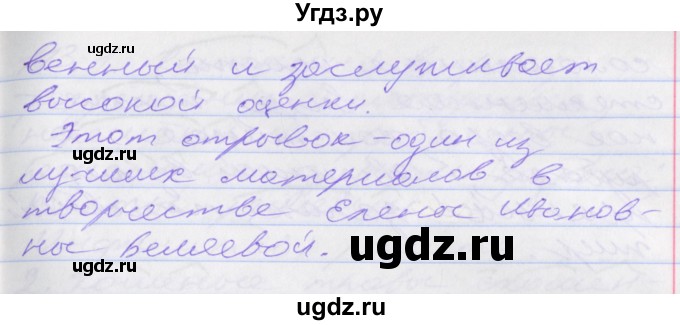 Угдз.ру
венный и заслуживает
высокой оценки.
Этот отрывок - один из
лучших материалов в
творчестве Елены Иванов-
ны Беляевой.
ugdz.ru
ugdz.ru
ugdz.ru
ugdz.ru
ugdz.ru
ugdz.ru
ugdz.ru
ugdz.ru